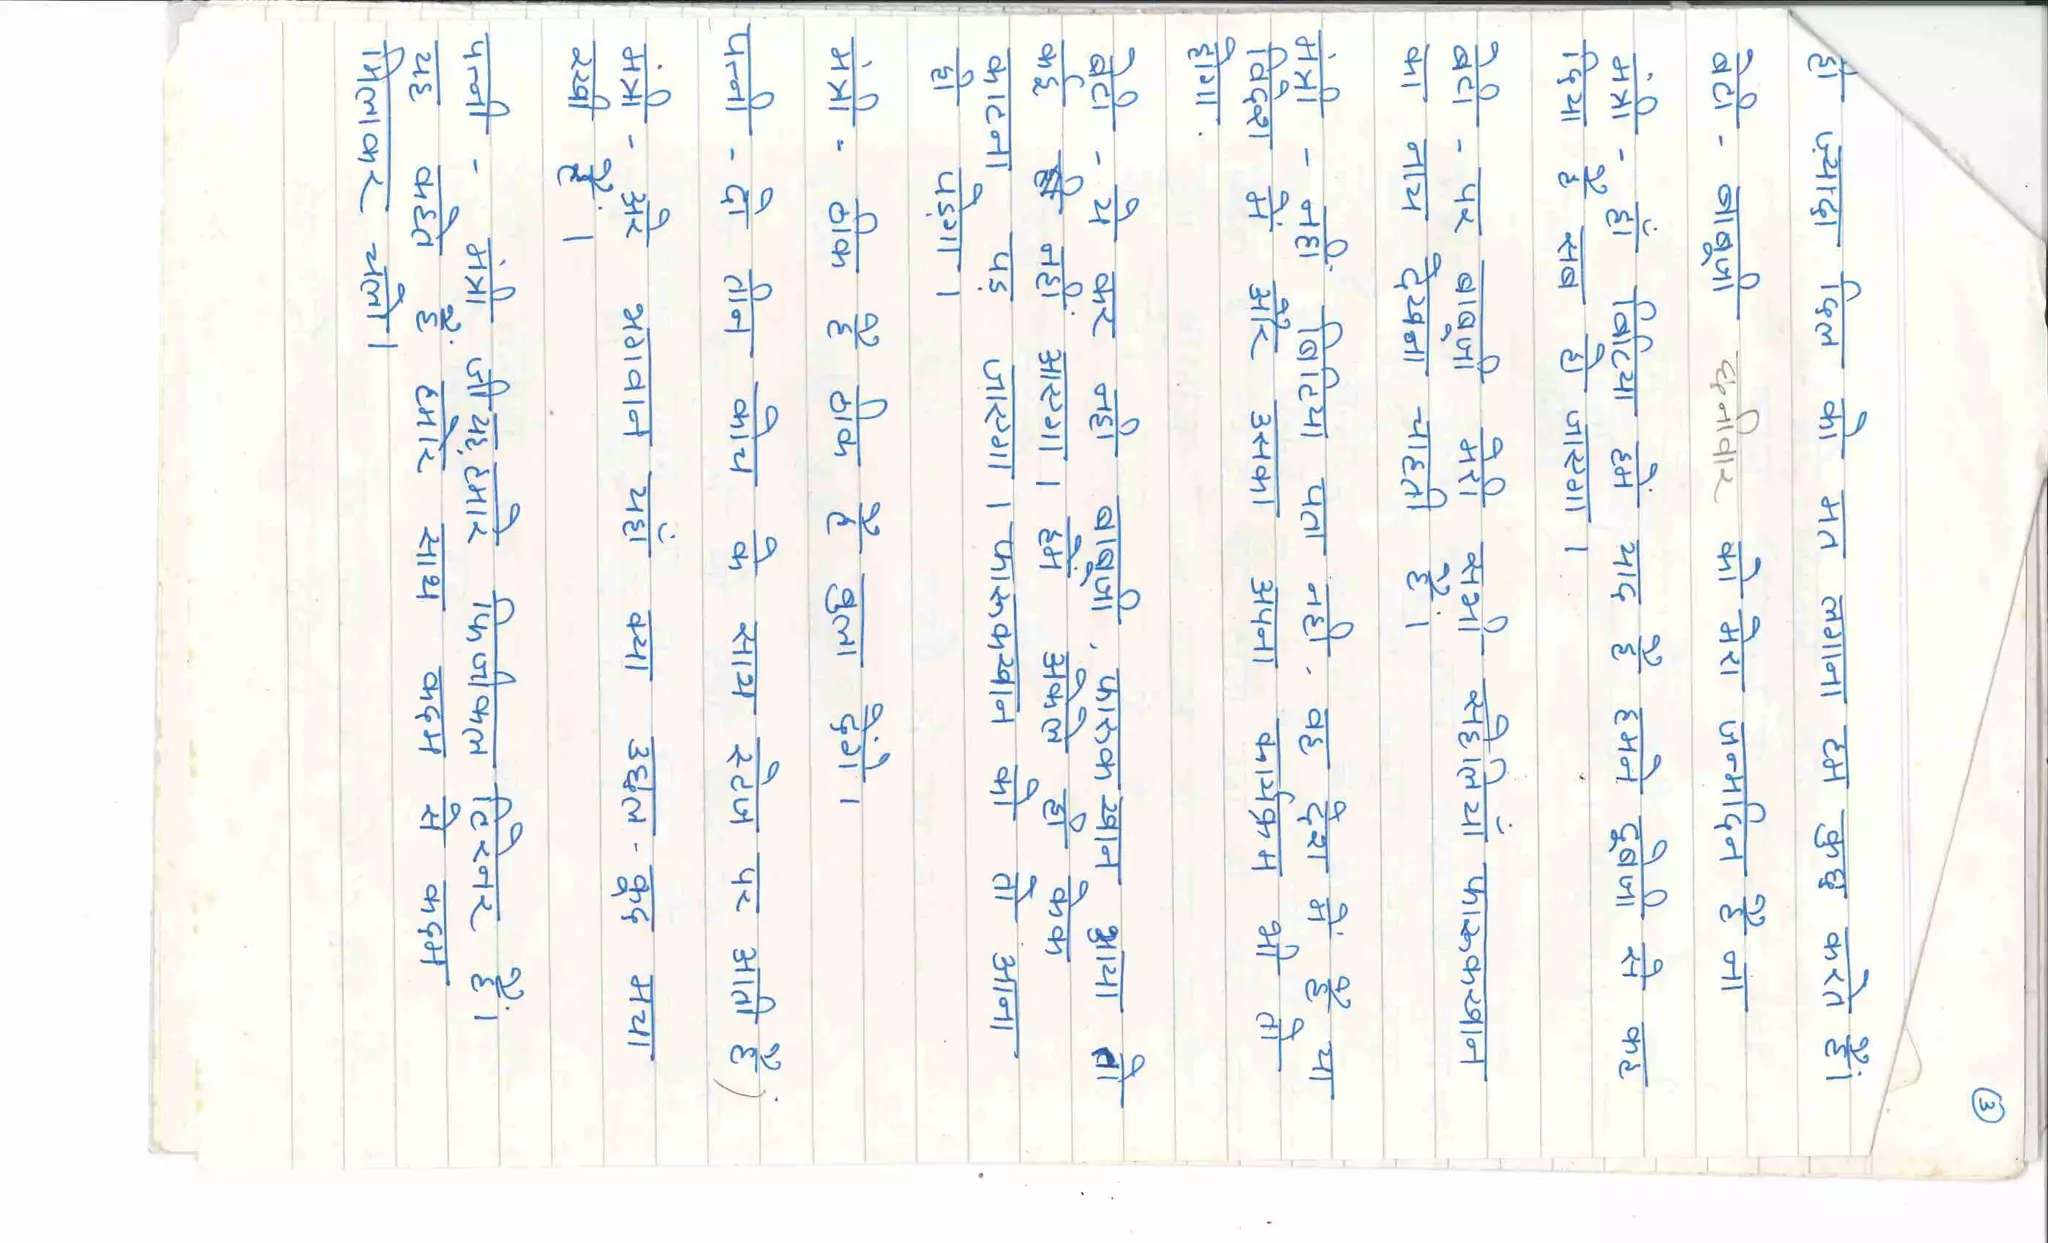 ③
ही ज़्यादा दिल को मत लगाना हम कुछ करते हैं।
बेटी - बाबूजी शनीवार को मेरा जन्मदिन है ना
मंत्री - हाँ बिटिया हमें याद है हमने दूबेजी से कह
दिया है सब हो जाएगा।
बेटी - पर बाबूजी मेरी सभी सहेलियाँ फारूकखान
का नाच देखना चाहती है।
मंत्री - नहीं बिटिया पता नहीं, वह देश में है या
विदेश में और उसका अपना कार्यक्रम भी तो
होगा.
बेटी - ये कर नहीं बाबूजी, फारूकखान आया तो
केक ही नहीं आएगा। हमें अकेले ही केक
काटना पड़ जाएगा। फारूकखान को तो आना
ही पड़ेगा।
मंत्री - ठीक है ठीक है बुला दुंगो।
पत्नी - दो तीन कोच के साथ स्टेज पर आती है)
मंत्री - अरे भगवान यहाँ क्या उछल-कूद मचा
रखी है।
पत्नी - मंत्री जी यह हमारे फिजीकल ट्रेनर हैं।
यह कहते हैं हमारे साथ कदम से कदम
मिलाकर चलो।